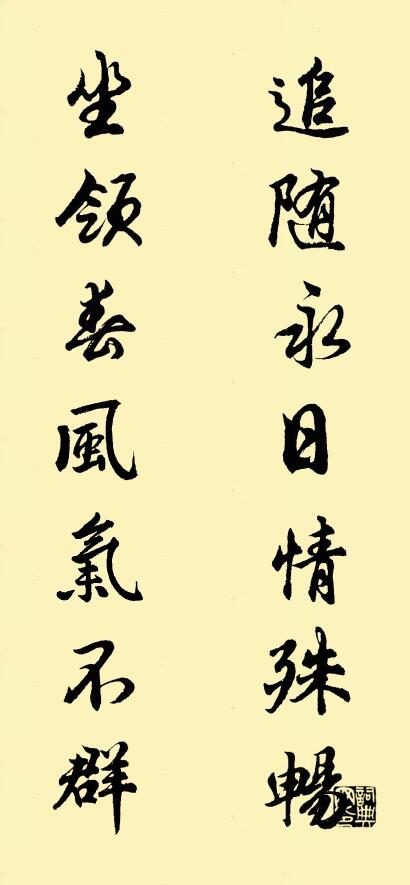 追随永日情殊暢
坐領春風氣不群